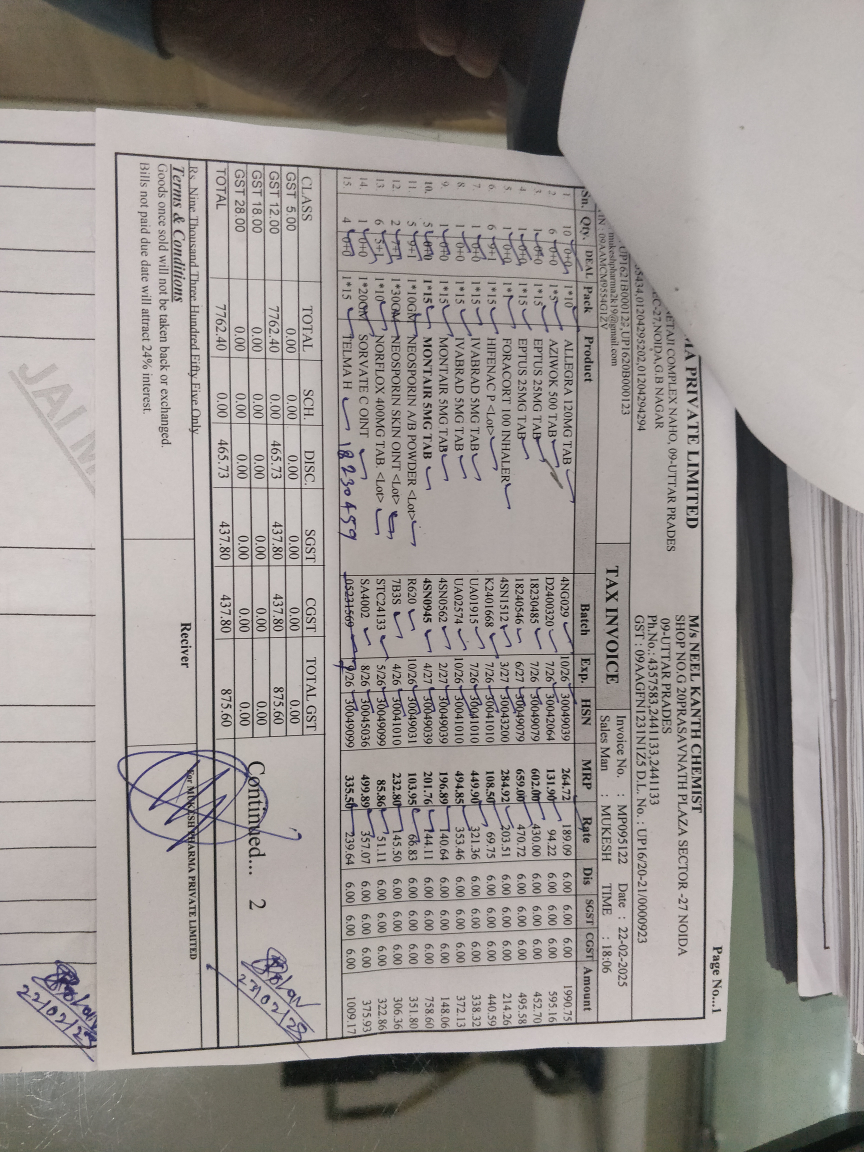 Page No...1
MA PRIVATE LIMITED
ETAJI COMPLEX NAHO, 09-UTTAR PRADES
EC-27,NOIDA,G.B NAGAR
35434,01204295202,01204294294
UP1621B000122,UP1620B000123
mukeshpharma2k19@gmail.com
IN : 09AAMCM9554G1ZV
M/s NEEL KANTH CHEMIST
SHOP NO.G 20PRASAVNATH PLAZA SECTOR -27 NOIDA
09-UTTAR PRADES
Ph.No.: 4357583,2441133,2441133
GST : 09AAGPN1231N1Z5 D.L. No.: UP16/20-21/0000923
TAX INVOICE
Invoice No. : MP095122 Date : 22-02-2025
Sales Man : MUKESH TIME : 18:06
Sn. Qty. DEAL Pack Product Batch Exp. HSN MRP Rate Dis SGST CGST Amount
1. 10 0+0 1*10 ALLEGRA 120MG TAB 4NG029 10/26 30049039 264.72 189.09 6.00 6.00 6.00 1990.75
2. 6 0+0 1*5 AZIWOK 500 TAB D2400320 7/26 30042064 131.90 94.22 6.00 6.00 6.00 595.16
3. 1 0+0 1*15 EPTUS 25MG TAB 18230485 7/26 30049079 602.00 430.00 6.00 6.00 6.00 452.70
4. 1 0+0 1*15 EPTUS 25MG TAB 18240546 6/27 30049079 659.00 470.72 6.00 6.00 6.00 495.58
5. 1 0+0 1*1 FORACORT 100 INHALER 4SN1512 3/27 30043200 284.92 203.51 6.00 6.00 6.00 214.26
6. 6 9+1 1*15 HIFENAC P <Lot> K2401668 7/26 30041010 108.50 69.75 6.00 6.00 6.00 440.59
7. 1 0+0 1*15 IVABRAD 5MG TAB UA01915 7/26 30041010 449.90 321.36 6.00 6.00 6.00 338.32
8. 1 0+0 1*15 IVABRAD 5MG TAB UA02574 10/26 30041010 494.85 353.46 6.00 6.00 6.00 372.13
9. 1 0+0 1*15 MONTAIR 5MG TAB 4SN0562 2/27 30049039 196.89 140.64 6.00 6.00 6.00 148.06
10. 5 0+0 1*15 MONTAIR 5MG TAB 4SN0945 4/27 30049039 201.76 144.11 6.00 6.00 6.00 758.60
11. 5 9+1 1*10GM NEOSPORIN A/B POWDER <Lot> R620 10/26 30049031 103.95 66.83 6.00 6.00 6.00 351.80
12. 2 7+1 1*30GM NEOSPORIN SKIN OINT <Lot> 7B3S 4/26 30041010 232.80 145.50 6.00 6.00 6.00 306.36
13. 6 5+1 1*10 NORFLOX 400MG TAB. <Lot> STC24133 5/26 30049099 85.86 51.11 6.00 6.00 6.00 322.86
14. 1 0+0 1*20GM SORVATE C OINT SA4002 8/26 30045036 499.89 357.07 6.00 6.00 6.00 375.93
15. 4 0+0 1*15 TELMA H 18230459 05231569 9/26 30049099 335.50 239.64 6.00 6.00 6.00 1009.17
CLASS TOTAL SCH. DISC. SGST CGST TOTAL GST
GST 5.00 0.00 0.00 0.00 0.00 0.00 0.00
GST 12.00 7762.40 0.00 465.73 437.80 437.80 875.60
GST 18.00 0.00 0.00 0.00 0.00 0.00 0.00
GST 28.00 0.00 0.00 0.00 0.00 0.00 0.00
TOTAL 7762.40 0.00 465.73 437.80 437.80 875.60
Continued... 2
23/02/25
Rs. Nine Thousand Three Hundred Fifty Five Only
Terms & Conditions
Goods once sold will not be taken back or exchanged.
Bills not paid due date will attract 24% interest.
Reciver
For MUKESH PHARMA PRIVATE LIMITED
JAI M
22/02/25